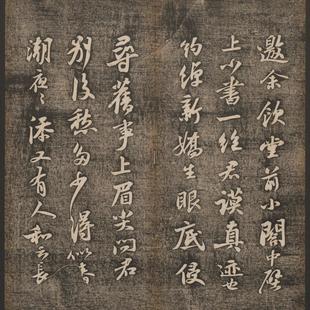 邀余飲堂前小閣中壁
上小書一絕君謨真迹也
約綽新嬌生眼底侵
尋舊事上眉尖問君
別後愁多少得似春
潮夜々添又有人和云長